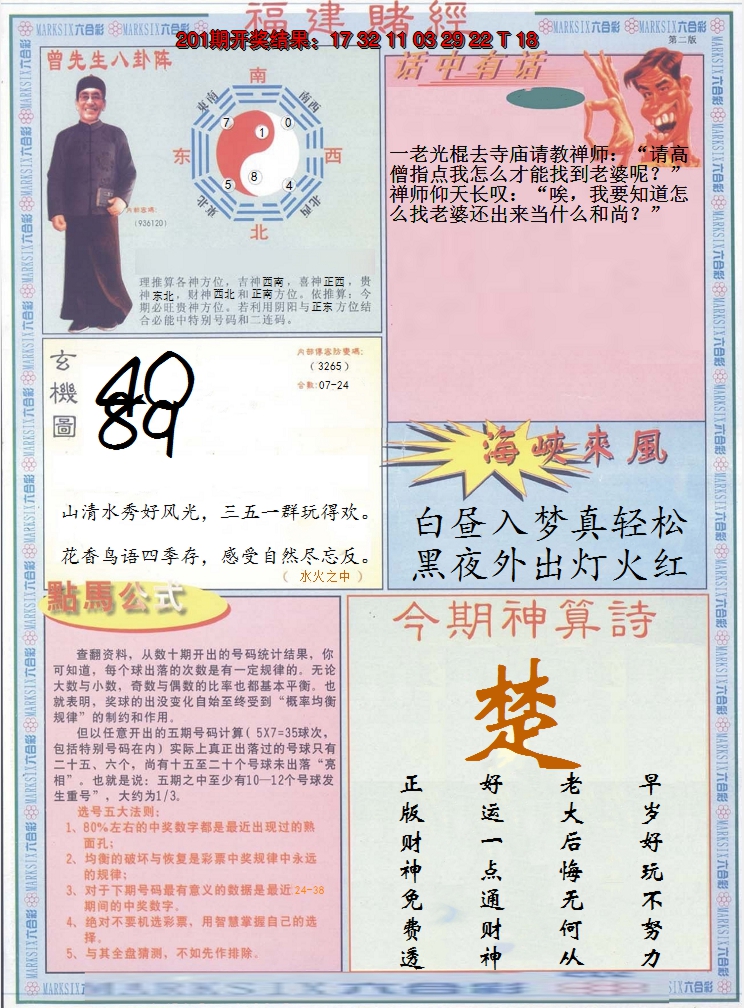 福建賭經
MARKSIX六合彩 MARKSIX六合彩 MARKSIX六合彩 MARKSIX六合彩
201期开奖结果：17 32 11 03 29 22 T 18
第二版
曾先生八卦阵
南
东南
南西
7
1
0
东
西
5
8
4
东北
北西
北
内部密碼:
（936120）
理推算各神方位，吉神西南，喜神正西，贵
神东北，财神西北和正南方位。依推算：今
期必旺贵神方位。若利用阴阳与正东方位结
合必能中特别号码和二连码。
话中有话
一老光棍去寺庙请教禅师：“请高
僧指点我怎么才能找到老婆呢？”
禅师仰天长叹：“唉，我要知道怎
么找老婆还出来当什么和尚？”
玄機圖
40
89
内部傳密防變碼:
（3265）
合數:07-24
山清水秀好风光，三五一群玩得欢。
花香鸟语四季存，感受自然尽忘反。
（ 水火之中 ）
海峽來風
白昼入梦真轻松
黑夜外出灯火红
點馬公式
查翻资料，从数十期开出的号码统计结果，你
可知道，每个球出落的次数是有一定规律的。无论
大数与小数，奇数与偶数的比率也都基本平衡。也
就表明，奖球的出没变化自始至终受到“概率均衡
规律”的制约和作用。
但以任意开出的五期号码计算（5X7=35球次，
包括特别号码在内）实际上真正出落过的号球只有
二十五、六个，尚有十五至二十个号球未出落“亮
相”。也就是说：五期之中至少有10—12个号球发
生重号”，大约为1/3。
选号五大法则：
1、80%左右的中奖数字都是最近出现过的熟
面孔；
2、均衡的破坏与恢复是彩票中奖规律中永远
的规律；
3、对于下期号码最有意义的数据是最近24-38
期间的中奖数字。
4、绝对不要机选彩票，用智慧掌握自己的选
择。
5、与其全盘猜测，不如先作排除。
今期神算詩
楚
早岁好玩不努力
老大后悔无何从
好运一点通财神
正版财神免费透